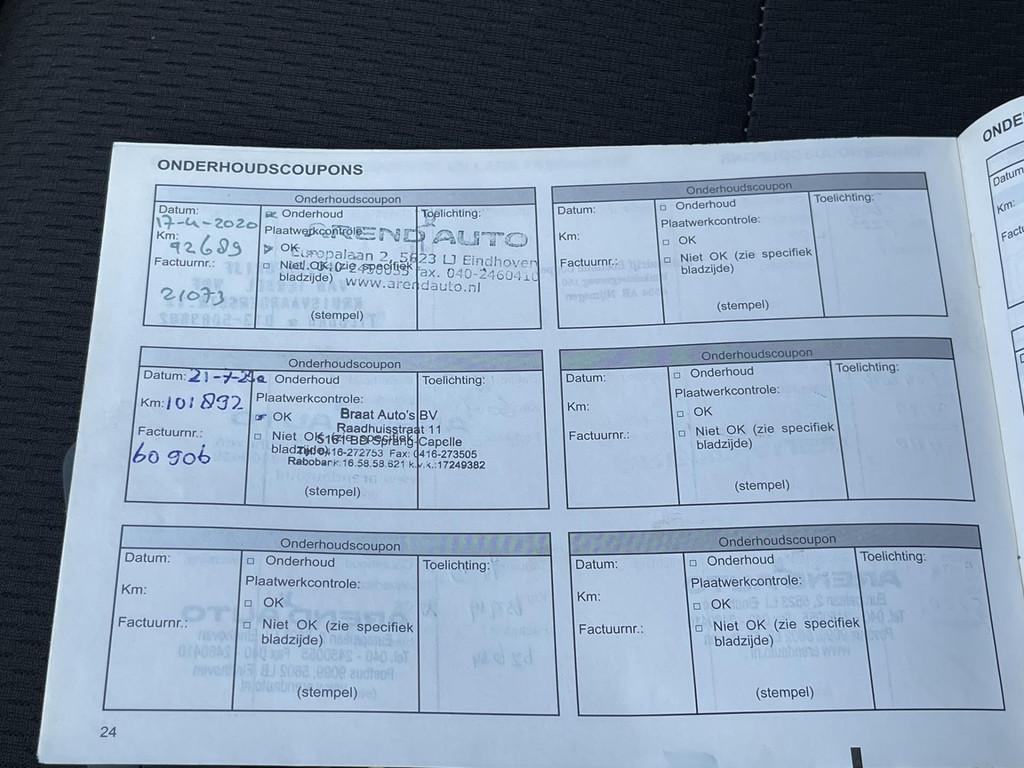 ONDERHOUDSCOUPONS
Onderhoudscoupon
Datum:
17-4-2020
Km:
92689
Factuurnr.:
21073
Onderhoud
Plaatwerkcontrole:
OK
Niet OK (zie specifiek
bladzijde)
(stempel)
Toelichting:
AREND AUTO
Europalaan 2, 5623 LJ Eindhoven
fax. 040-2460410
www.arendauto.nl
Onderhoudscoupon
Datum:
Km:
Factuurnr.:
Onderhoud
Plaatwerkcontrole:
OK
Niet OK (zie specifiek
bladzijde)
(stempel)
Toelichting:
Onderhoudscoupon
Datum: 21-7-
Km: 101892
Factuurnr.:
60906
Onderhoud
Plaatwerkcontrole:
OK
Niet OK (zie specifiek
bladzijde)
(stempel)
Toelichting:
Braat Auto's BV
Raadhuisstraat 11
5161 BD Sprang-Capelle
Tel. 0416-272753 Fax: 0416-273505
Rabobank: 16.58.58.621 k.v.k.:17249382
Onderhoudscoupon
Datum:
Km:
Factuurnr.:
Onderhoud
Plaatwerkcontrole:
OK
Niet OK (zie specifiek
bladzijde)
(stempel)
Toelichting:
Onderhoudscoupon
Datum:
Km:
Factuurnr.:
Onderhoud
Plaatwerkcontrole:
OK
Niet OK (zie specifiek
bladzijde)
(stempel)
Toelichting:
Onderhoudscoupon
Datum:
Km:
Factuurnr.:
Onderhoud
Plaatwerkcontrole:
OK
Niet OK (zie specifiek
bladzijde)
(stempel)
Toelichting:
24
ONDE
Datum
Km:
Factu